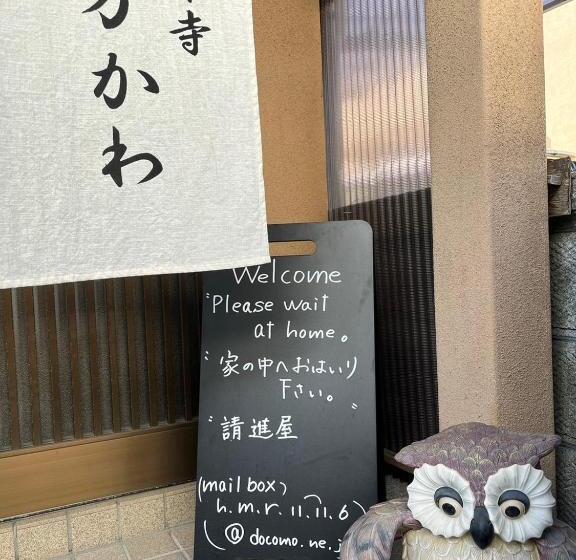 寺
かわ
Welcome
"Please wait
at home。
"家の中へおはいり
下さい。"
"請進屋"
(mail box)
h.m.r.11.11.6
@docomo.ne.j